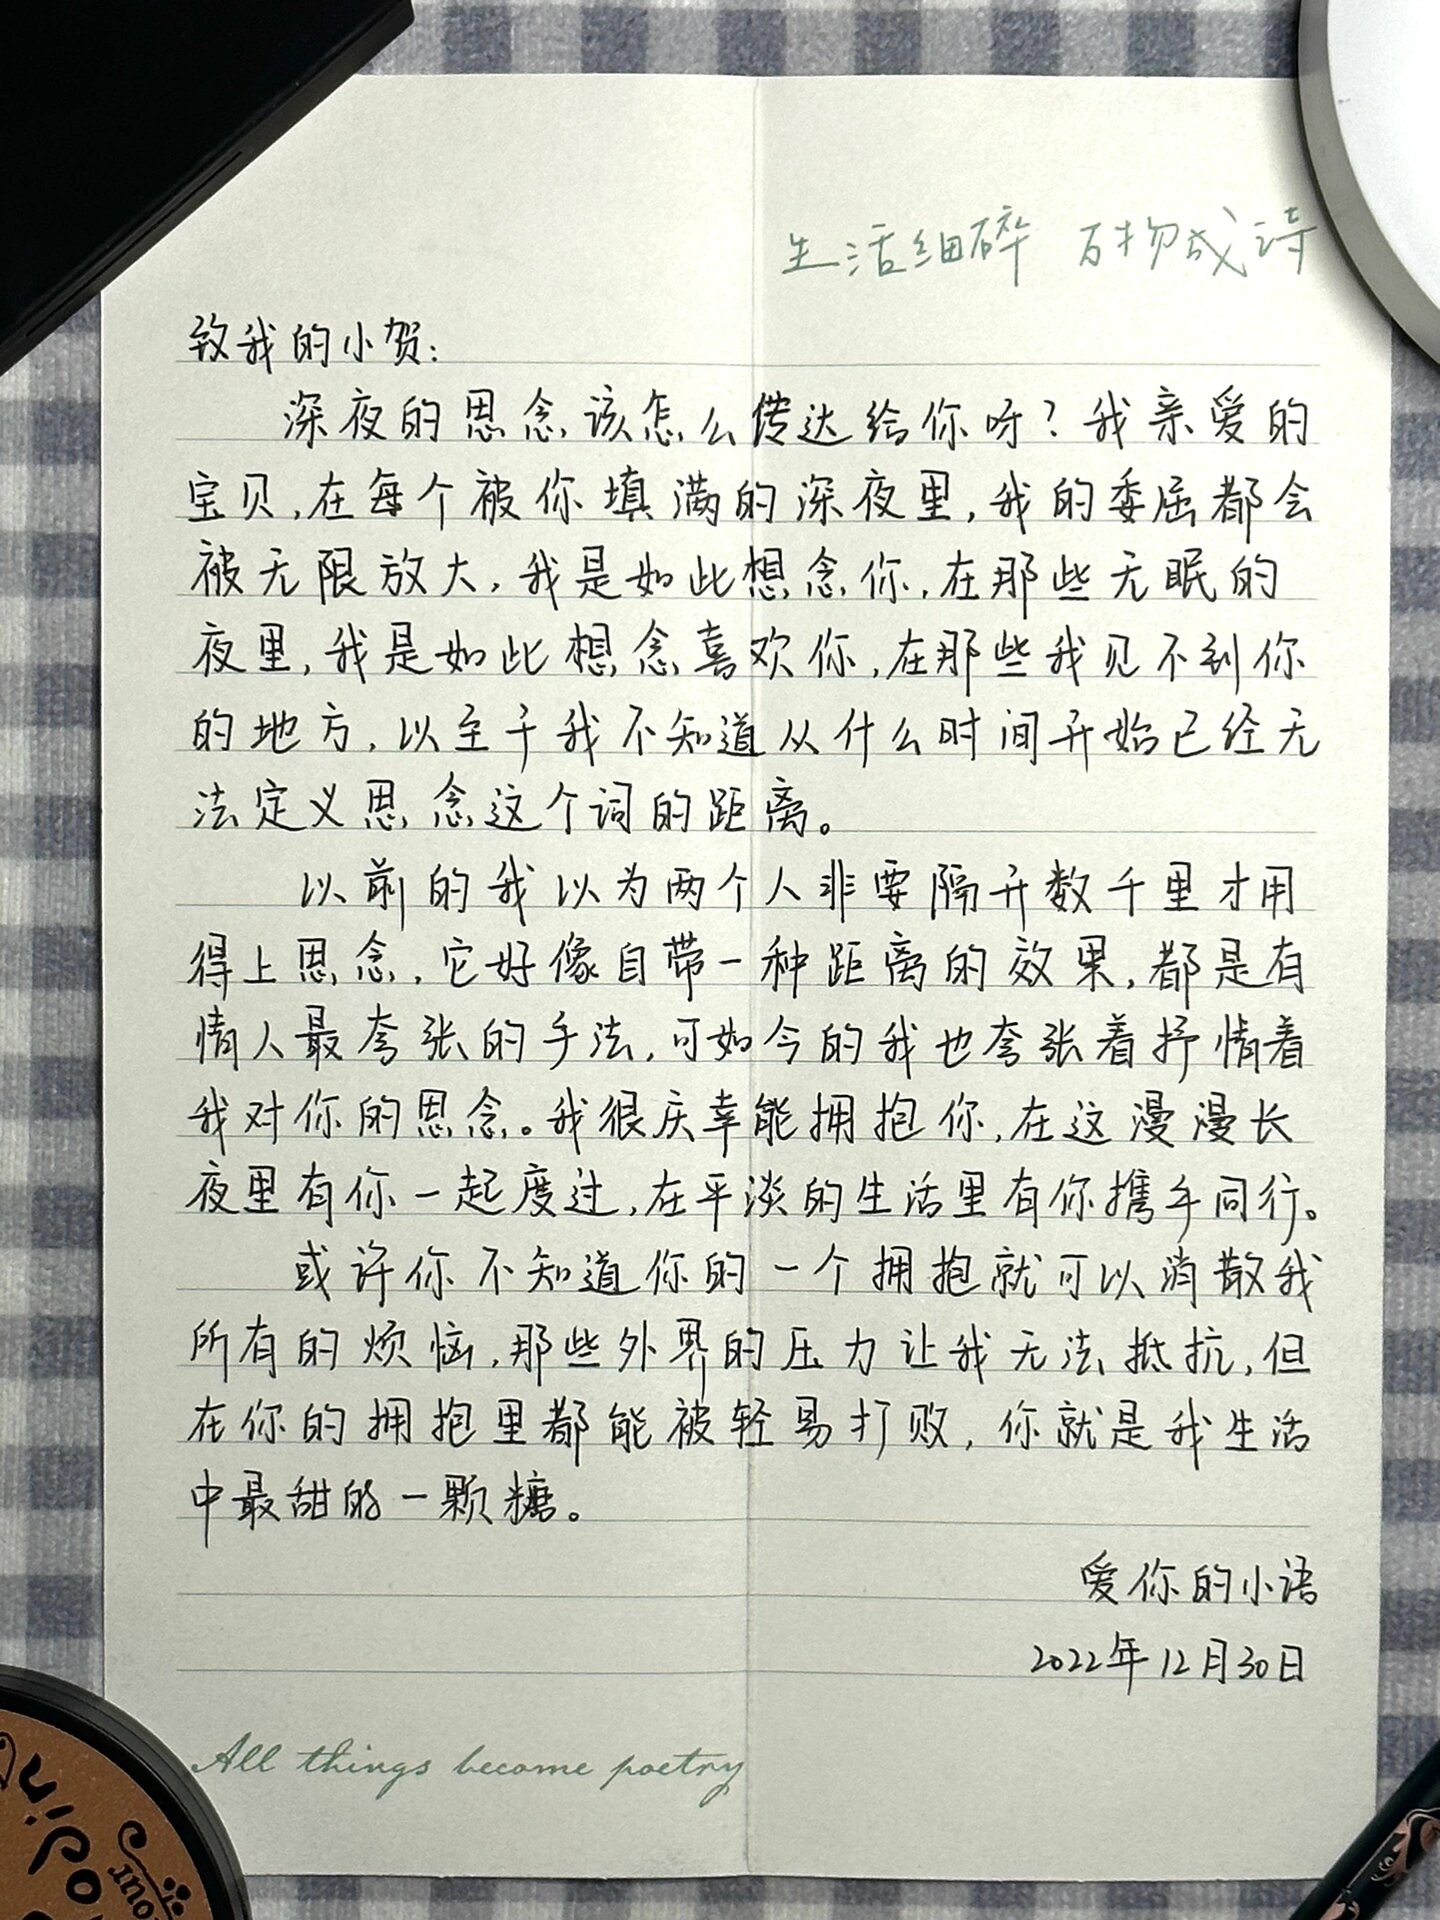 生活细碎 万物成诗
致我的小贺:
深夜的思念该怎么传达给你呀?我亲爱的
宝贝,在每个被你填满的深夜里,我的委屈都会
被无限放大,我是如此想念你,在那些无眠的
夜里,我是如此想念喜欢你,在那些我见不到你
的地方,以至于我不知道从什么时间开始已经无
法定义思念这个词的距离。
以前的我以为两个人非要隔开数千里才用
得上思念,它好像自带一种距离的效果,都是有
情人最夸张的手法,可如今的我也夸张着抒情着
我对你的思念。我很庆幸能拥抱你,在这漫漫长
夜里有你一起度过,在平淡的生活里有你携手同行。
或许你不知道你的一个拥抱就可以消散我
所有的烦恼,那些外界的压力让我无法抵抗,但
在你的拥抱里都能被轻易打败,你就是我生活
中最甜的一颗糖。
爱你的小语
2022年12月30日
All things become poetry